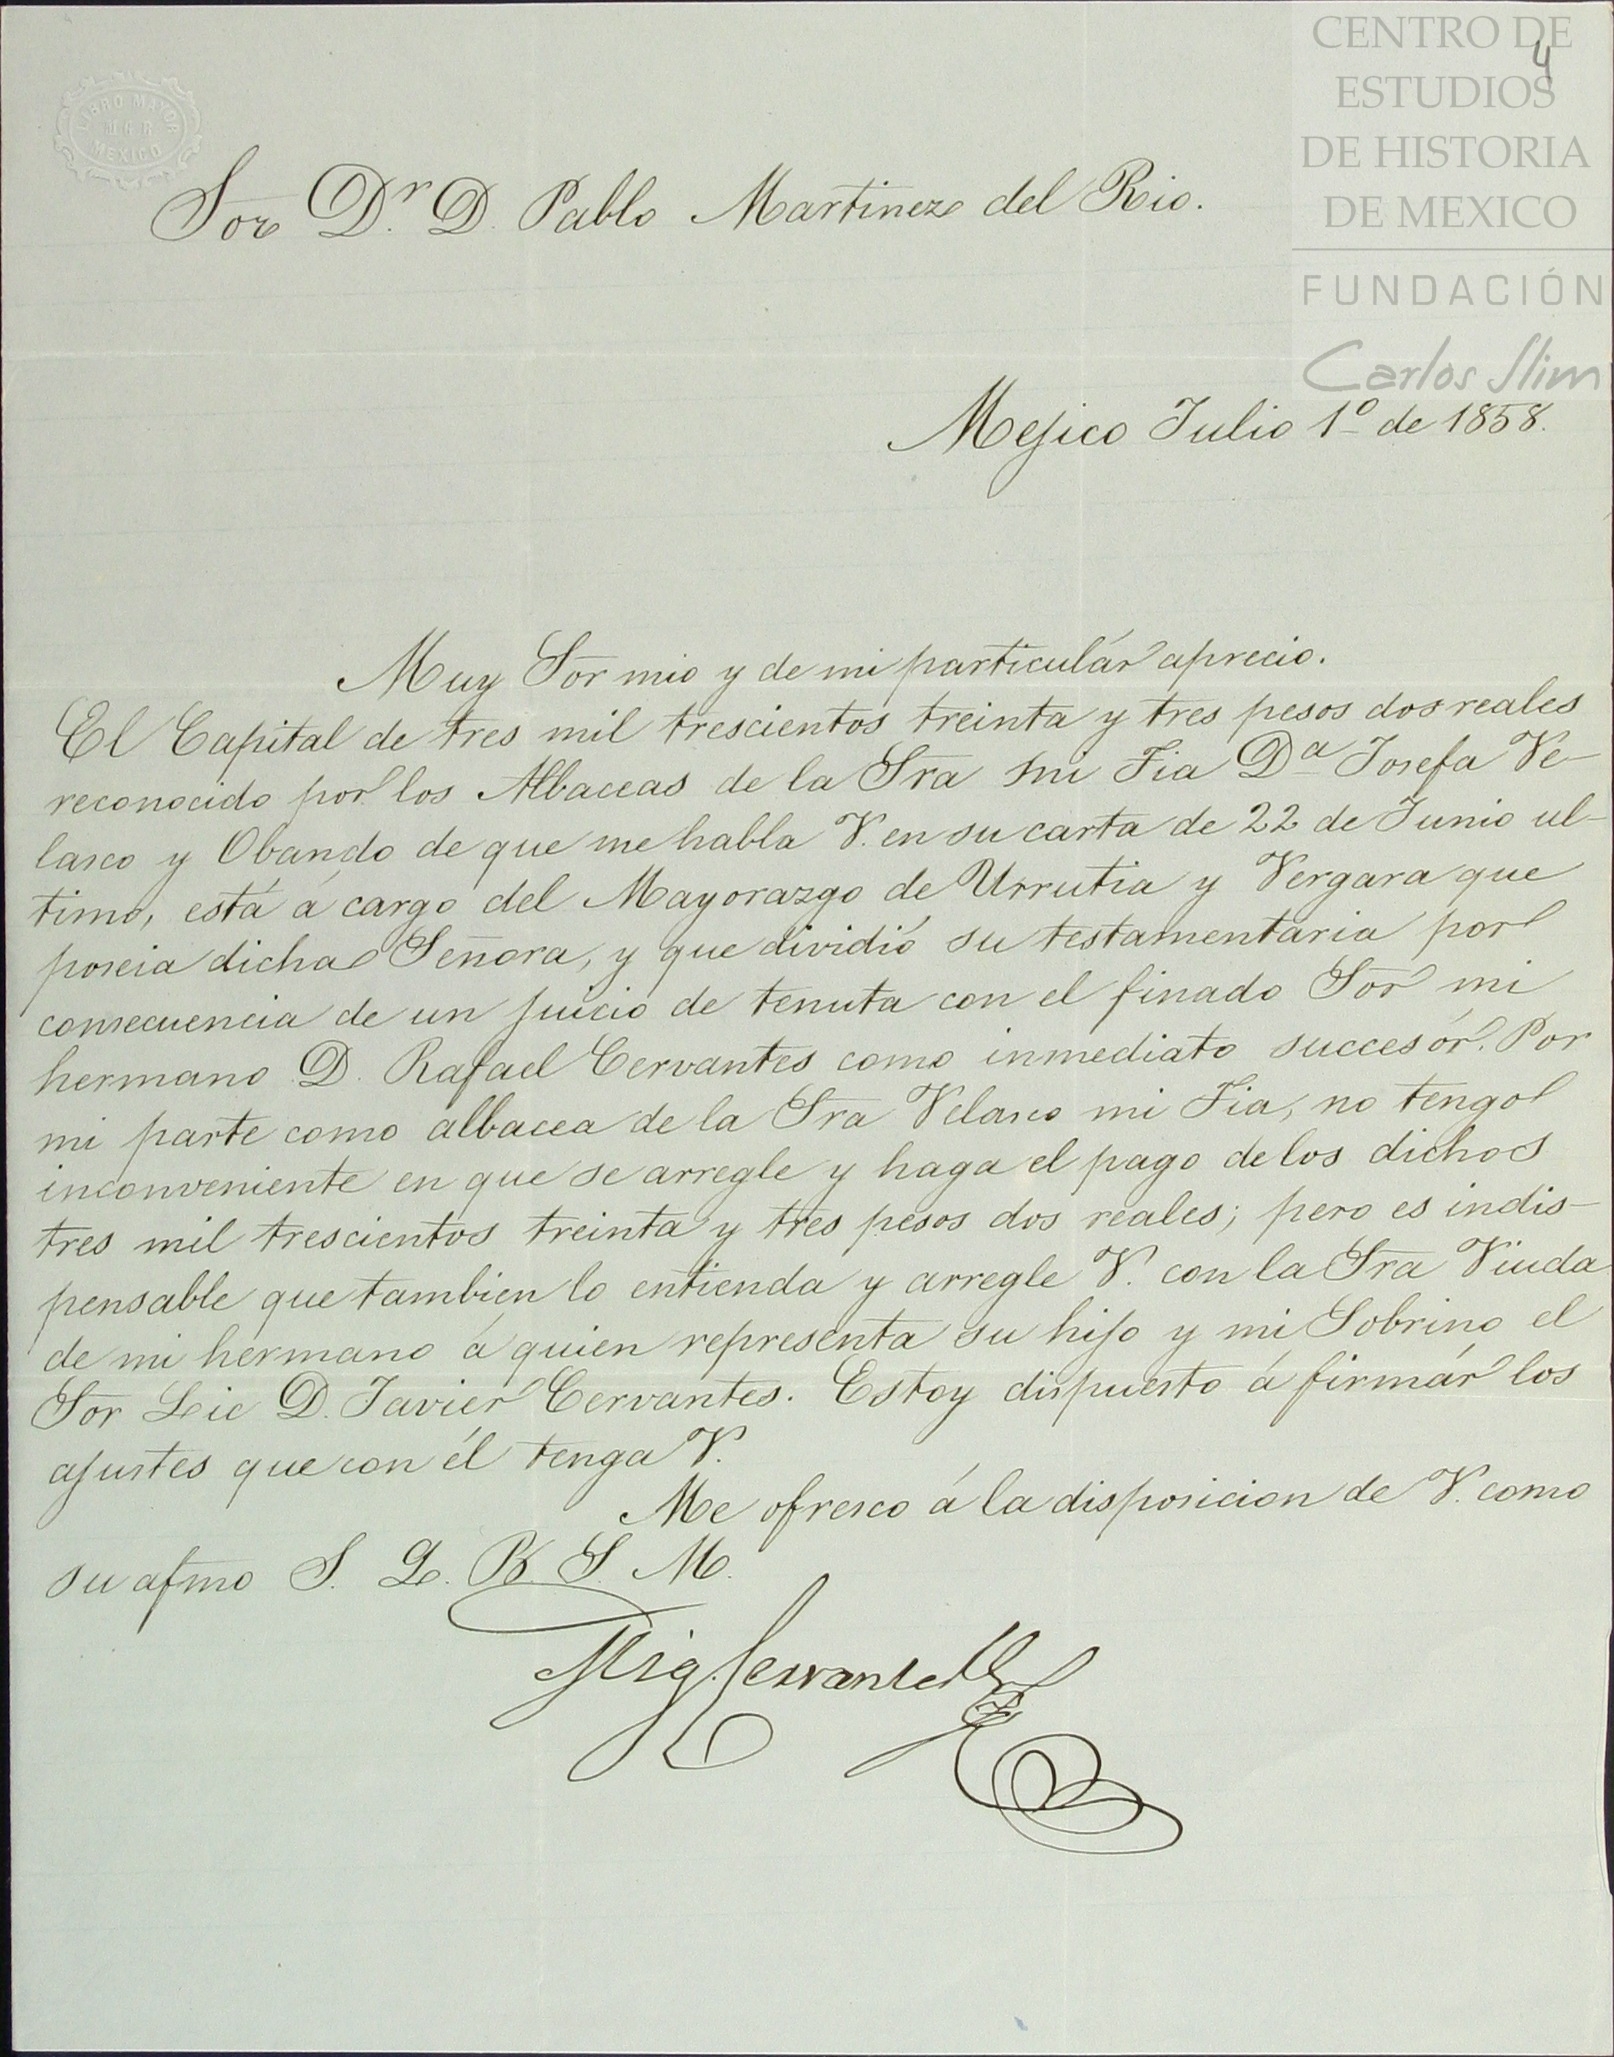 CENTRO DE
ESTUDIOS
DE HISTORIA
DE MEXICO
FUNDACIÓN
Carlos Slim
4
LIBRO MAYOR
MEXICO
Sor Dr. D. Pablo Martinez del Rio.
Mejico Julio 1º de 1858.
Muy Sor mio y de mi particulár aprecio.
El Capital de tres mil trescientos treinta y tres pesos dos reales
reconocido por los Albaceas de la Sra mi Tia Dª Josefa Ve-
lasco y Obando de que me habla V. en su carta de 22 de Junio ul-
timo, está á cargo del Mayorazgo de Urrutia y Vergara que
poseia dicha Señora, y que dividió su testamentaria por
consecuencia de un juicio de tenuta con el finado Sor mi
hermano D. Rafael Cervantes como inmediato succesór. Por
mi parte como albacea de la Sra Velasco mi Tia, no tengo
inconveniente en que se arregle y haga el pago de los dichos
tres mil trescientos treinta y tres pesos dos reales; pero es indis-
pensable que tambien lo entienda y arregle V. con la Sra Viuda
de mi hermano á quien representa su hijo y mi Sobrino el
Sor Lic D. Javier Cervantes. Estoy dispuesto á firmár los
ajustes que con él tenga V.
Me ofresco á la disposicion de V. como
su afmo S. Q. B. S. M.
Mig. Cervantes